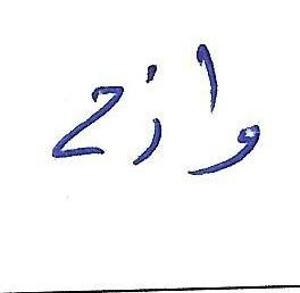 وازح